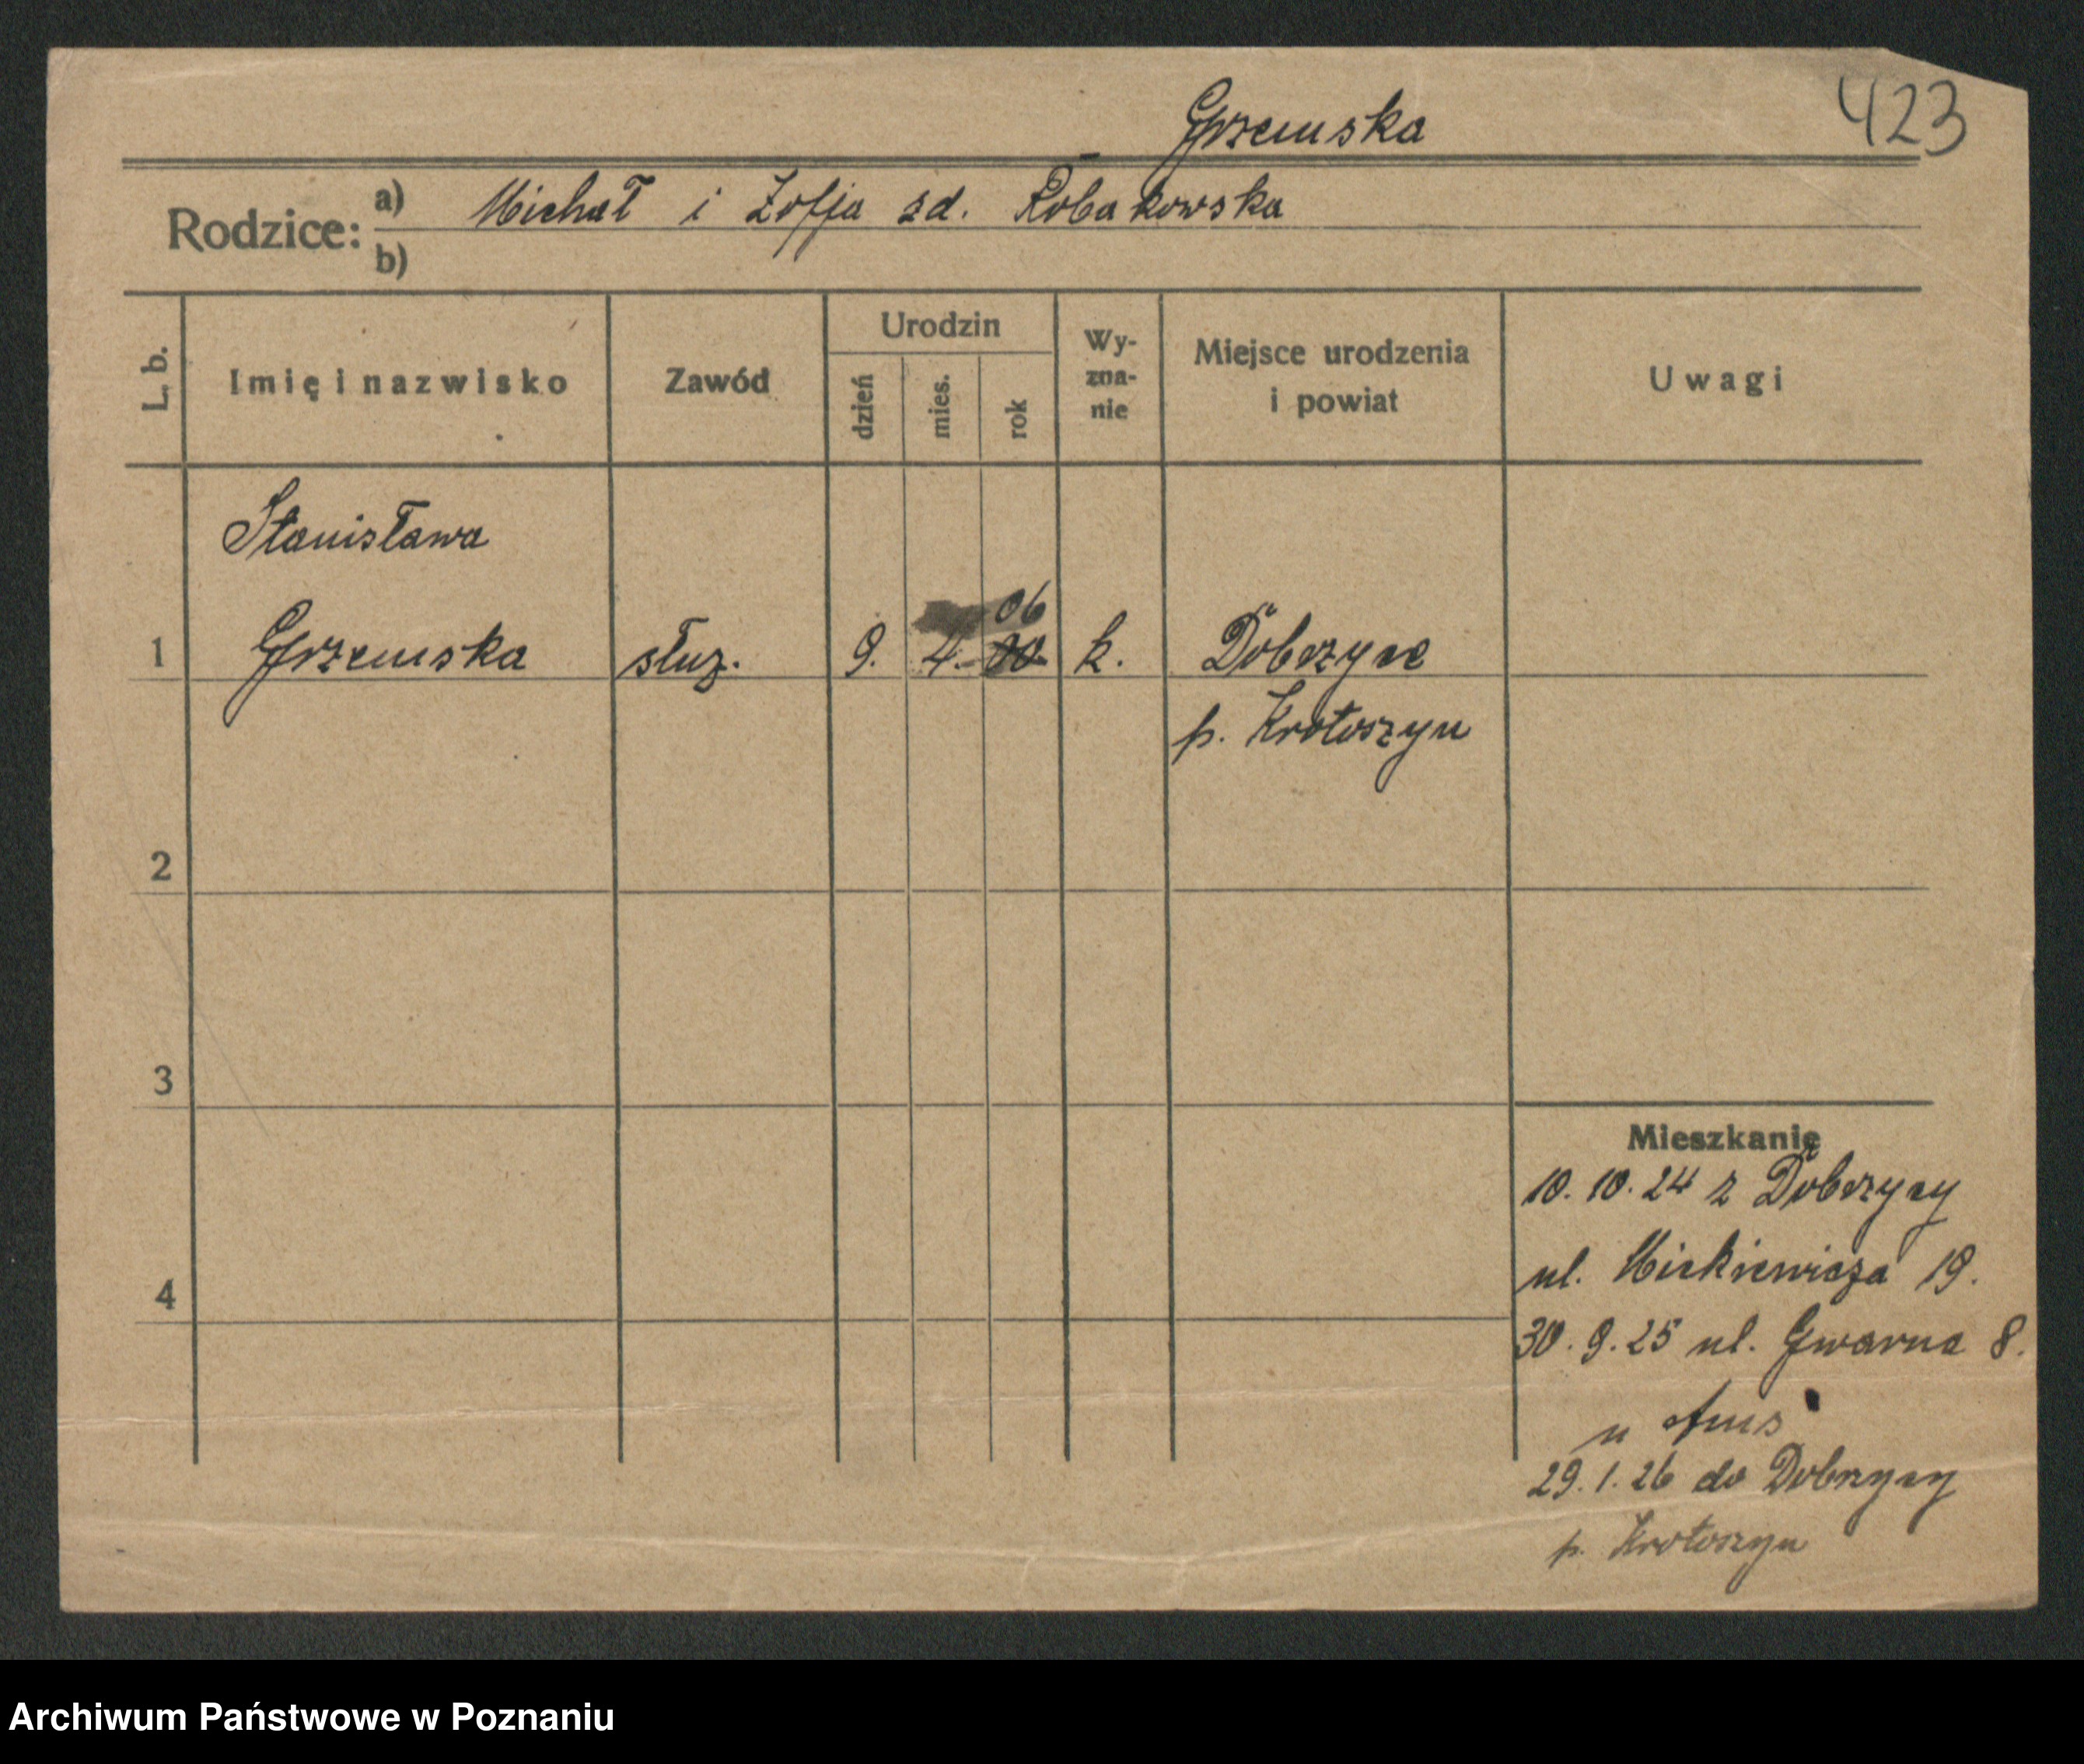 Grzemska
423
Rodzice: a) Michał i Zofja zd. Robakowska
b)
L. b.
Imię i nazwisko
Zawód
Urodzin
dzień
mies.
rok
Wy-
zna-
nie
Miejsce urodzenia
i powiat
Uwagi
Stanisława
06
1 Grzemska służ. 9. 4. 00 k. Dobrzyce
p. Krotoszyn
2
3
4
Mieszkanie
10. 10. 24 z Dobrzycy
ul. Mickiewicza 19.
30. 9. 25 ul. Gwarna 8.
u
29. 1. 26 do Dobrzycy
p. Krotoszyn
Archiwum Państwowe w Poznaniu